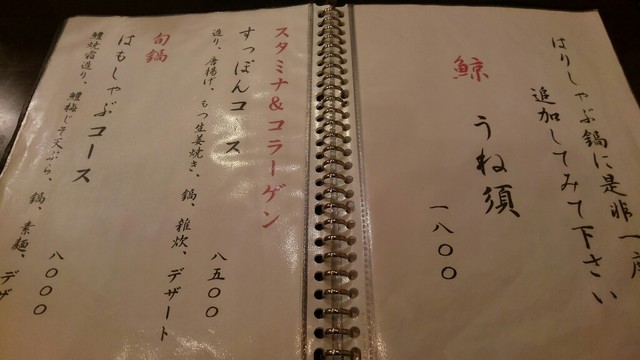 はりしゃぶ鍋に是非一度
追加してみて下さい
鯨 うね須
一八〇〇
スタミナ&コラーゲン
すっぽんコース
造り、唐揚げ、もつ生姜焼き、鍋、雑炊、デザート
八五〇〇
旬鍋
はもしゃぶコース
鱧焼霜造り、鱧梅じそ天ぷら、鍋、素麺、デザ
八〇〇〇